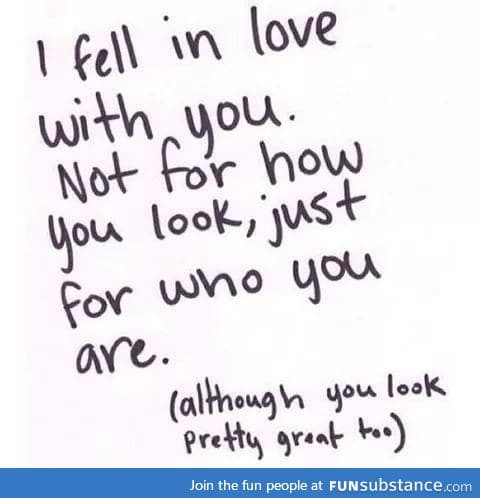 I fell in love
with you.
Not for how
you look, just
for who you
are.
(although you look
pretty great too)
Join the fun people at FUNsubstance.com